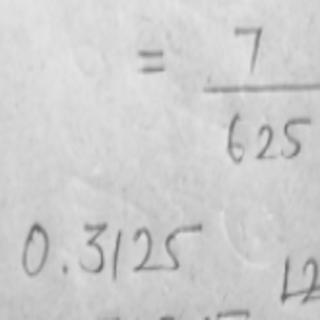 = 7
625
0.3125
12